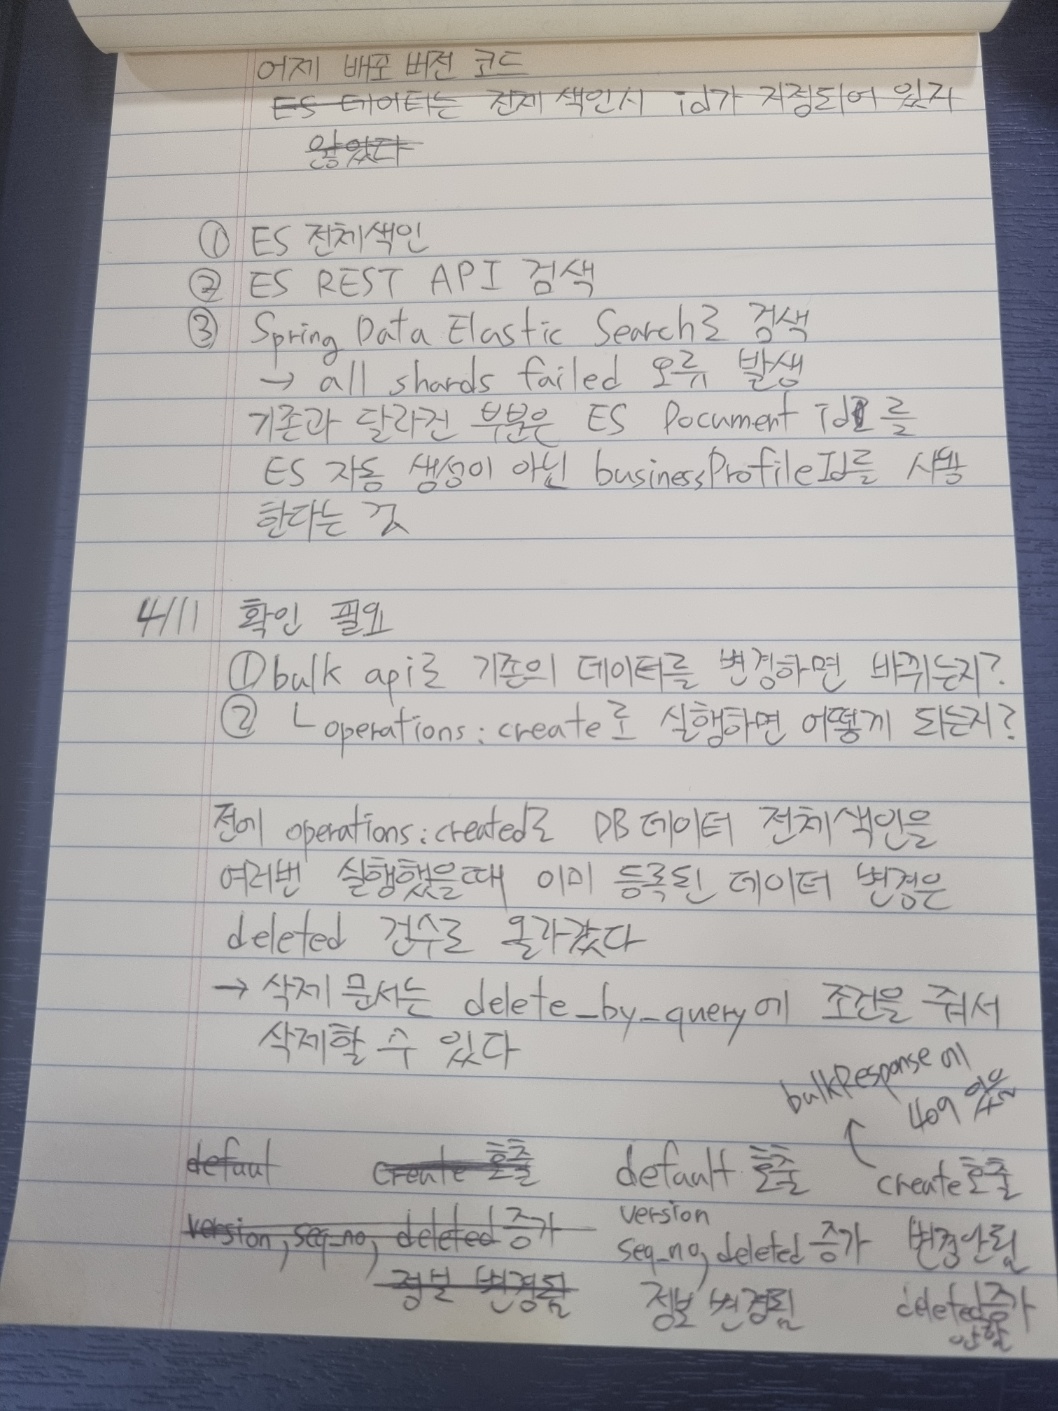 어제 배포 버전 코드
ES 데이터는 전체 색인시 id가 지정되어 있지
않았다
① ES 전체색인
② ES REST API 검색
③ Spring Data Elastic Search로 검색
→ all shards failed 오류 발생
기존과 달라진 부분은 ES Document id를
ES 자동 생성이 아닌 businessProfileId를 사용
한다는 것
4/11 확인 필요
① bulk api로 기존의 데이터를 변경하면 바뀌는지?
② ㄴ operations: create로 실행하면 어떻게 되는지?
전에 operations: created로 DB 데이터 전체색인을
여러번 실행했을때 이미 등록된 데이터 변경은
deleted 건수로 올라갔다
→ 삭제 문서는 delete_by_query에 조건을 줘서
삭제할 수 있다
bulkResponse에
409 있음
↑
defaul create 호출 default 호출 create 호출
version, seq_no, deleted 증가 version
seq_no, deleted 증가 변경안됨
정보 변경됨 정보 변경됨 deleted증가
안함